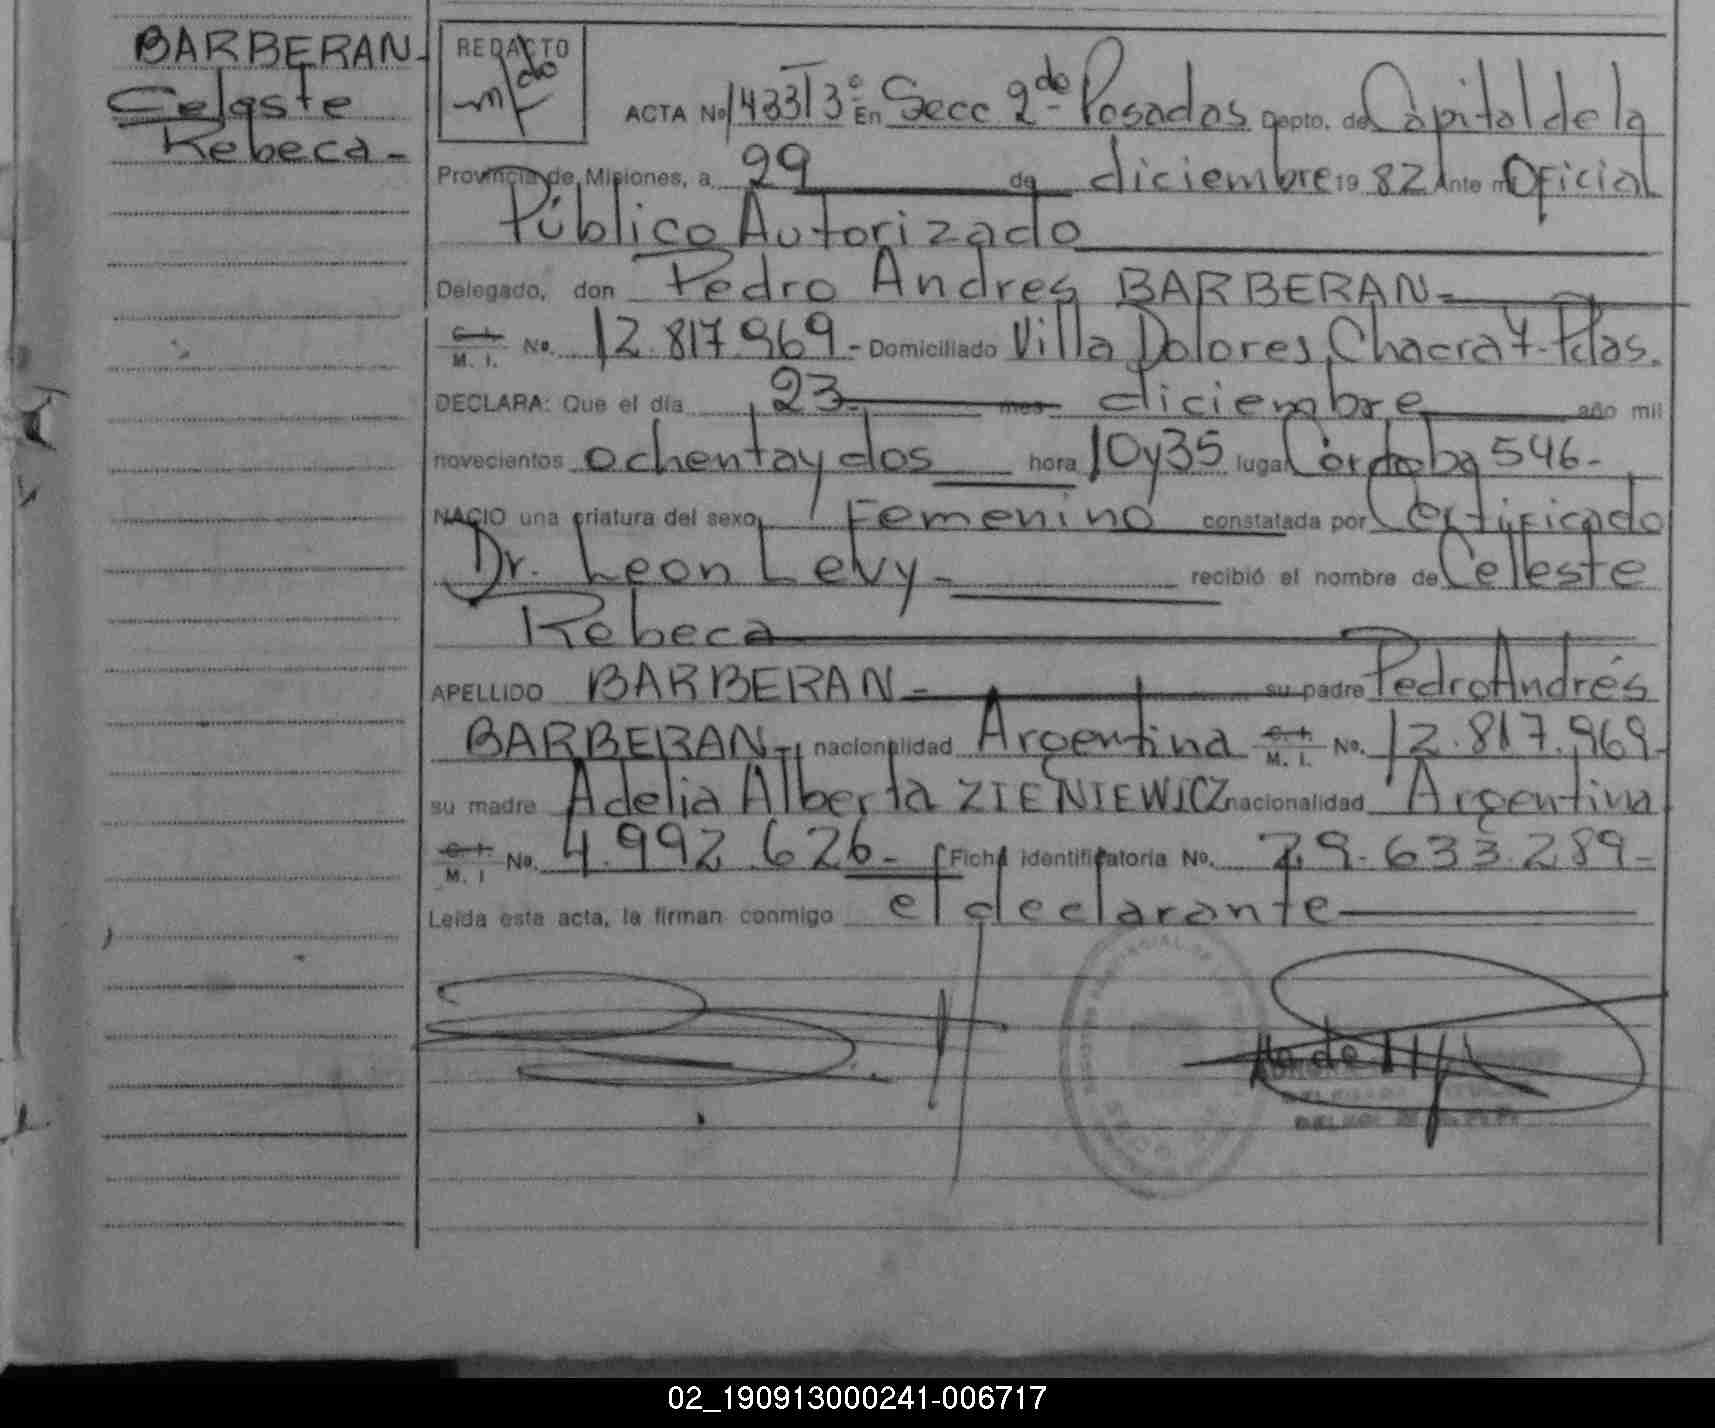 BARBERAN-
Celeste
Rebeca-
REDACTO
ACTA Nº 1433T3º En Secc 2da Posadas Depto. de Capital de la
Provincia de Misiones, a 29 de diciembre 19 82 Ante mi Oficial
Público Autorizado
Delegado, don Pedro Andres BARBERAN-
C. I.
M. I. No. 12.817.969- Domiciliado Villa Dolores, Chacra 4-Pdas.
DECLARA: Que el día 23- mes diciembre año mil
novecientos ochenta y dos hora 10y35 lugar Córdoba 546-
NACIO una criatura del sexo Femenino constatada por Certificado
Dr. Leon Levy- recibió el nombre de Celleste
Rebeca
APELLIDO BARBERAN- su padre Pedro Andrés
BARBERAN- nacionalidad Argentina C. I.
M. I. No. 12.817.969-
su madre Adelia Alberta ZIENIEWICZ nacionalidad Argentina
C. I.
M. I No. 4.992.626- Ficha identificatoria No. 29.633.289-
Leída esta acta, la firman conmigo el declarante
02_190913000241-006717